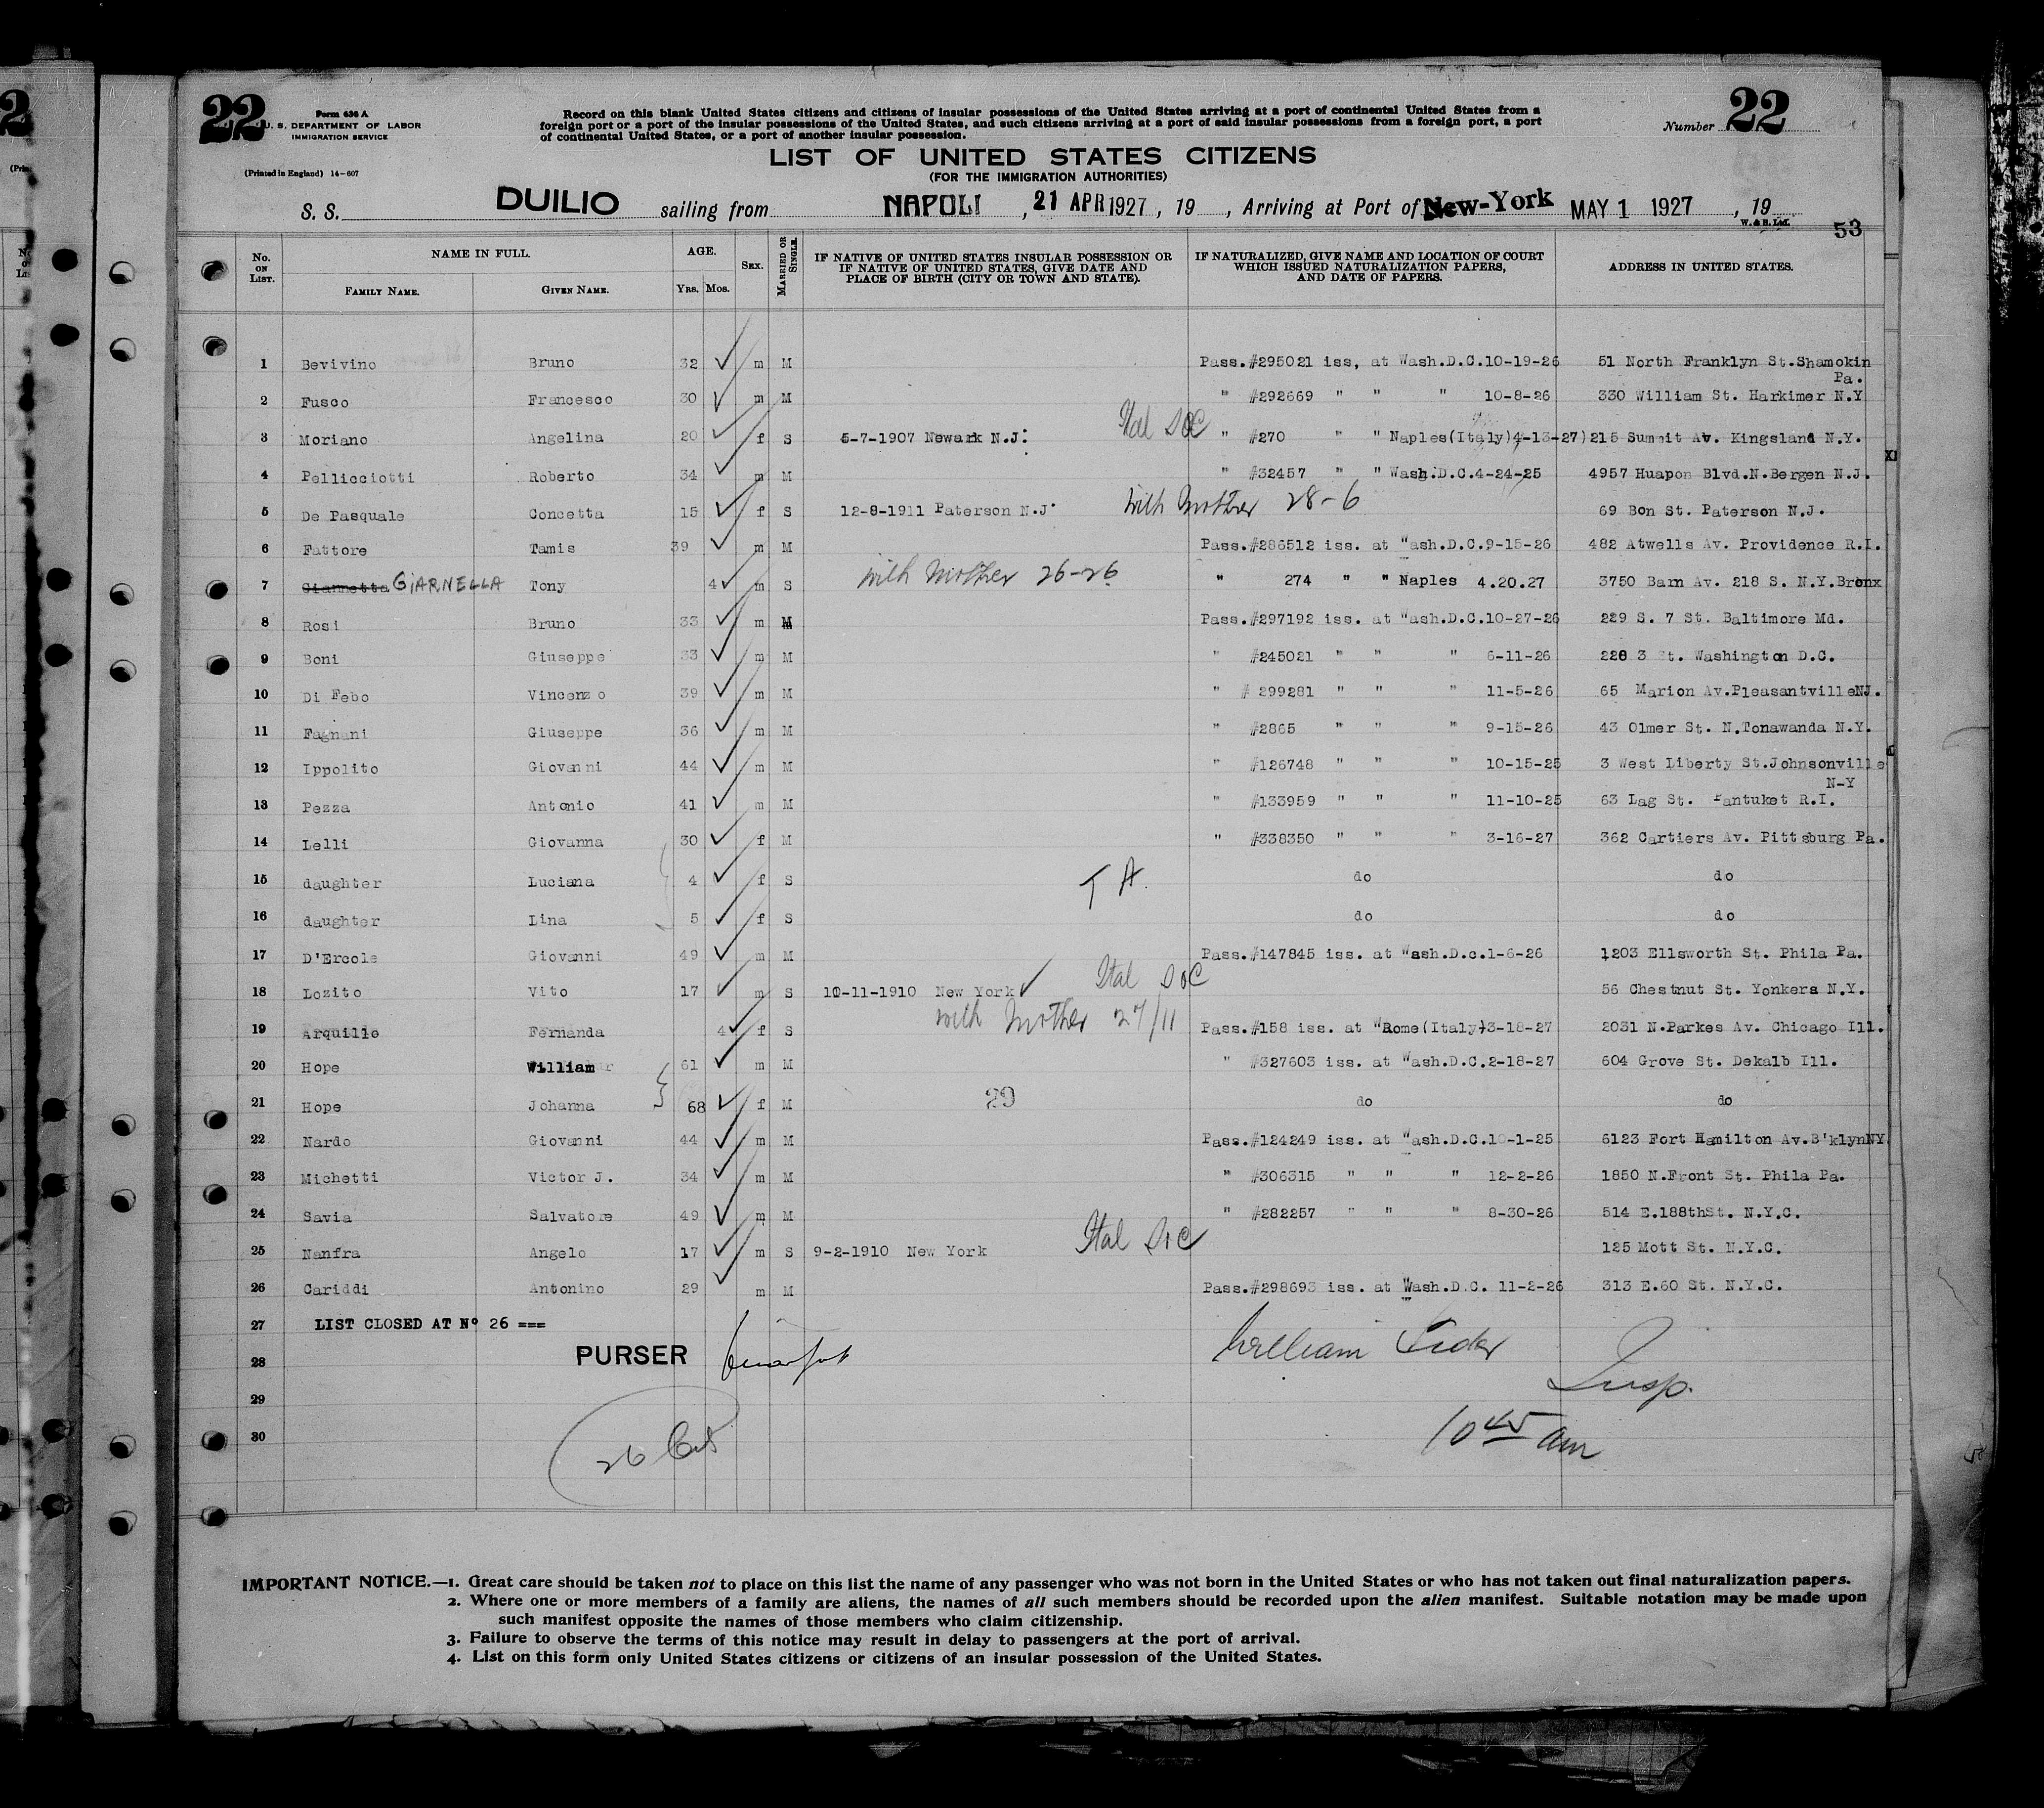 22
Form 630 A
U. S. DEPARTMENT OF LABOR
IMMIGRATION SERVICE
(Printed in England) 14-607
Record on this blank United States citizens and citizens of insular possessions of the United States arriving at a port of continental United States from a
foreign port or a port of the insular possessions of the United States, and such citizens arriving at a port of said insular possessions from a foreign port, a port
of continental United States, or a port of another insular possession.
Number 22
LIST OF UNITED STATES CITIZENS
(FOR THE IMMIGRATION AUTHORITIES)
S. S. DUILIO sailing from NAPOLI , 21 APR 1927 , 19 , Arriving at Port of New-York MAY 1 1927 , 19
W. & B. Ltd.
53
No. ON LIST. NAME IN FULL. FAMILY NAME. GIVEN NAME. AGE. YRS. MOS. SEX. MARRIED OR SINGLE. IF NATIVE OF UNITED STATES INSULAR POSSESSION OR IF NATIVE OF UNITED STATES, GIVE DATE AND PLACE OF BIRTH (CITY OR TOWN AND STATE). IF NATURALIZED, GIVE NAME AND LOCATION OF COURT WHICH ISSUED NATURALIZATION PAPERS, AND DATE OF PAPERS. ADDRESS IN UNITED STATES.
1 Bevivino Bruno 32 ✓ m M Pass.#295021 iss, at Wash.D.C.10-19-26 51 North Franklyn St.Shamokin
Pa.
2 Fusco Francesco 30 ✓ m M " #292669 " " " 10-8-26 330 William St. Harkimer N.Y
3 Moriano Angelina 20 ✓ f S 5-7-1907 Newark N.J. Ital DOC " #270 " " Naples(Italy)4-13-27) 215 Summit Av. Kingsland N.Y.
4 Pellicciotti Roberto 34 ✓ m M " #32457 " " Wash.D.C.4-24-25 4957 Huapon Blvd.N.Bergen N.J.
5 De Pasquale Concetta 15 ✓ f S 12-8-1911 Paterson N.J. with Mother 28-6 69 Bon St. Paterson N.J.
6 Fattore Tamis 39 ✓ m M Pass.#286512 iss. at Wash.D.C.9-15-26 482 Atwells Av. Providence R.I.
7 Giannetta GIARNELLA Tony 4 ✓ m S with Mother 26-26 " 274 " " Naples 4.20.27 3750 Barn Av. 218 S. N.Y.Bronx
8 Rosi Bruno 33 ✓ m M Pass.#297192 iss. at Wash.D.C.10-27-26 229 S. 7 St. Baltimore Md.
9 Boni Giuseppe 33 ✓ m M " #245021 " " " 6-11-26 228 3 St. Washington D.C.
10 Di Febo Vincenzo 39 ✓ m M " # 299281 " " " 11-5-26 65 Marion Av.PleasantvilleNJ.
11 Fagnani Giuseppe 36 ✓ m M " #2865 " " " 9-15-26 43 Olmer St. N.Tonawanda N.Y.
12 Ippolito Giovanni 44 ✓ m M " #126748 " " " 10-15-25 3 West Liberty St.Johnsonville
N-Y
13 Pezza Antonio 41 ✓ m M " #133959 " " " 11-10-25 63 Lag St. Pantuket R.I.
14 Lelli Giovanna 30 ✓ f M " #338350 " " " 3-16-27 362 Cartiers Av. Pittsburg Pa.
15 daughter Luciana 4 ✓ f S T A. do do
16 daughter Lina 5 ✓ f S do do
17 D'Ercole Giovanni 49 ✓ m M Pass.#147845 iss. at Wash.D.c.1-6-26 1203 Ellsworth St. Phila Pa.
18 Lozito Vito 17 ✓ m S 10-11-1910 New York ✓ Ital DOC 56 Chestnut St. Yonkers N.Y.
with Mother 27/11
19 Arquillo Fernanda 4 ✓ f S Pass.#158 iss. at Rome(Italy)3-18-27 2031 N.Parkes Av. Chicago Ill.
20 Hope William 61 ✓ m M " #327603 iss. at Wash.D.C.2-18-27 604 Grove St. Dekalb Ill.
21 Hope Johanna 68 ✓ f M 29 do do
22 Nardo Giovanni 44 ✓ m M Pass.#124249 iss. at Wash.D.C.10-1-25 6123 Fort Hamilton Av.B'klynNY
23 Michetti Victor J. 34 ✓ m M " #306315 " " " 12-2-26 1850 N.Front St. Phila Pa.
24 Savia Salvatore 49 ✓ m M " #282257 " " " 8-30-26 514 E.188thSt. N.Y.C.
25 Nanfra Angelo 17 ✓ m S 9-2-1910 New York Ital DOC 125 Mott St. N.Y.C.
26 Cariddi Antonino 29 ✓ m M Pass.#298693 iss. at Wash.D.C. 11-2-26 313 E.60 St. N.Y.C.
27 LIST CLOSED AT Nº 26 ===
28 PURSER William
Insp.
29
30 26 10 45 am
IMPORTANT NOTICE.—1. Great care should be taken not to place on this list the name of any passenger who was not born in the United States or who has not taken out final naturalization papers.
2. Where one or more members of a family are aliens, the names of all such members should be recorded upon the alien manifest. Suitable notation may be made upon
such manifest opposite the names of those members who claim citizenship.
3. Failure to observe the terms of this notice may result in delay to passengers at the port of arrival.
4. List on this form only United States citizens or citizens of an insular possession of the United States.